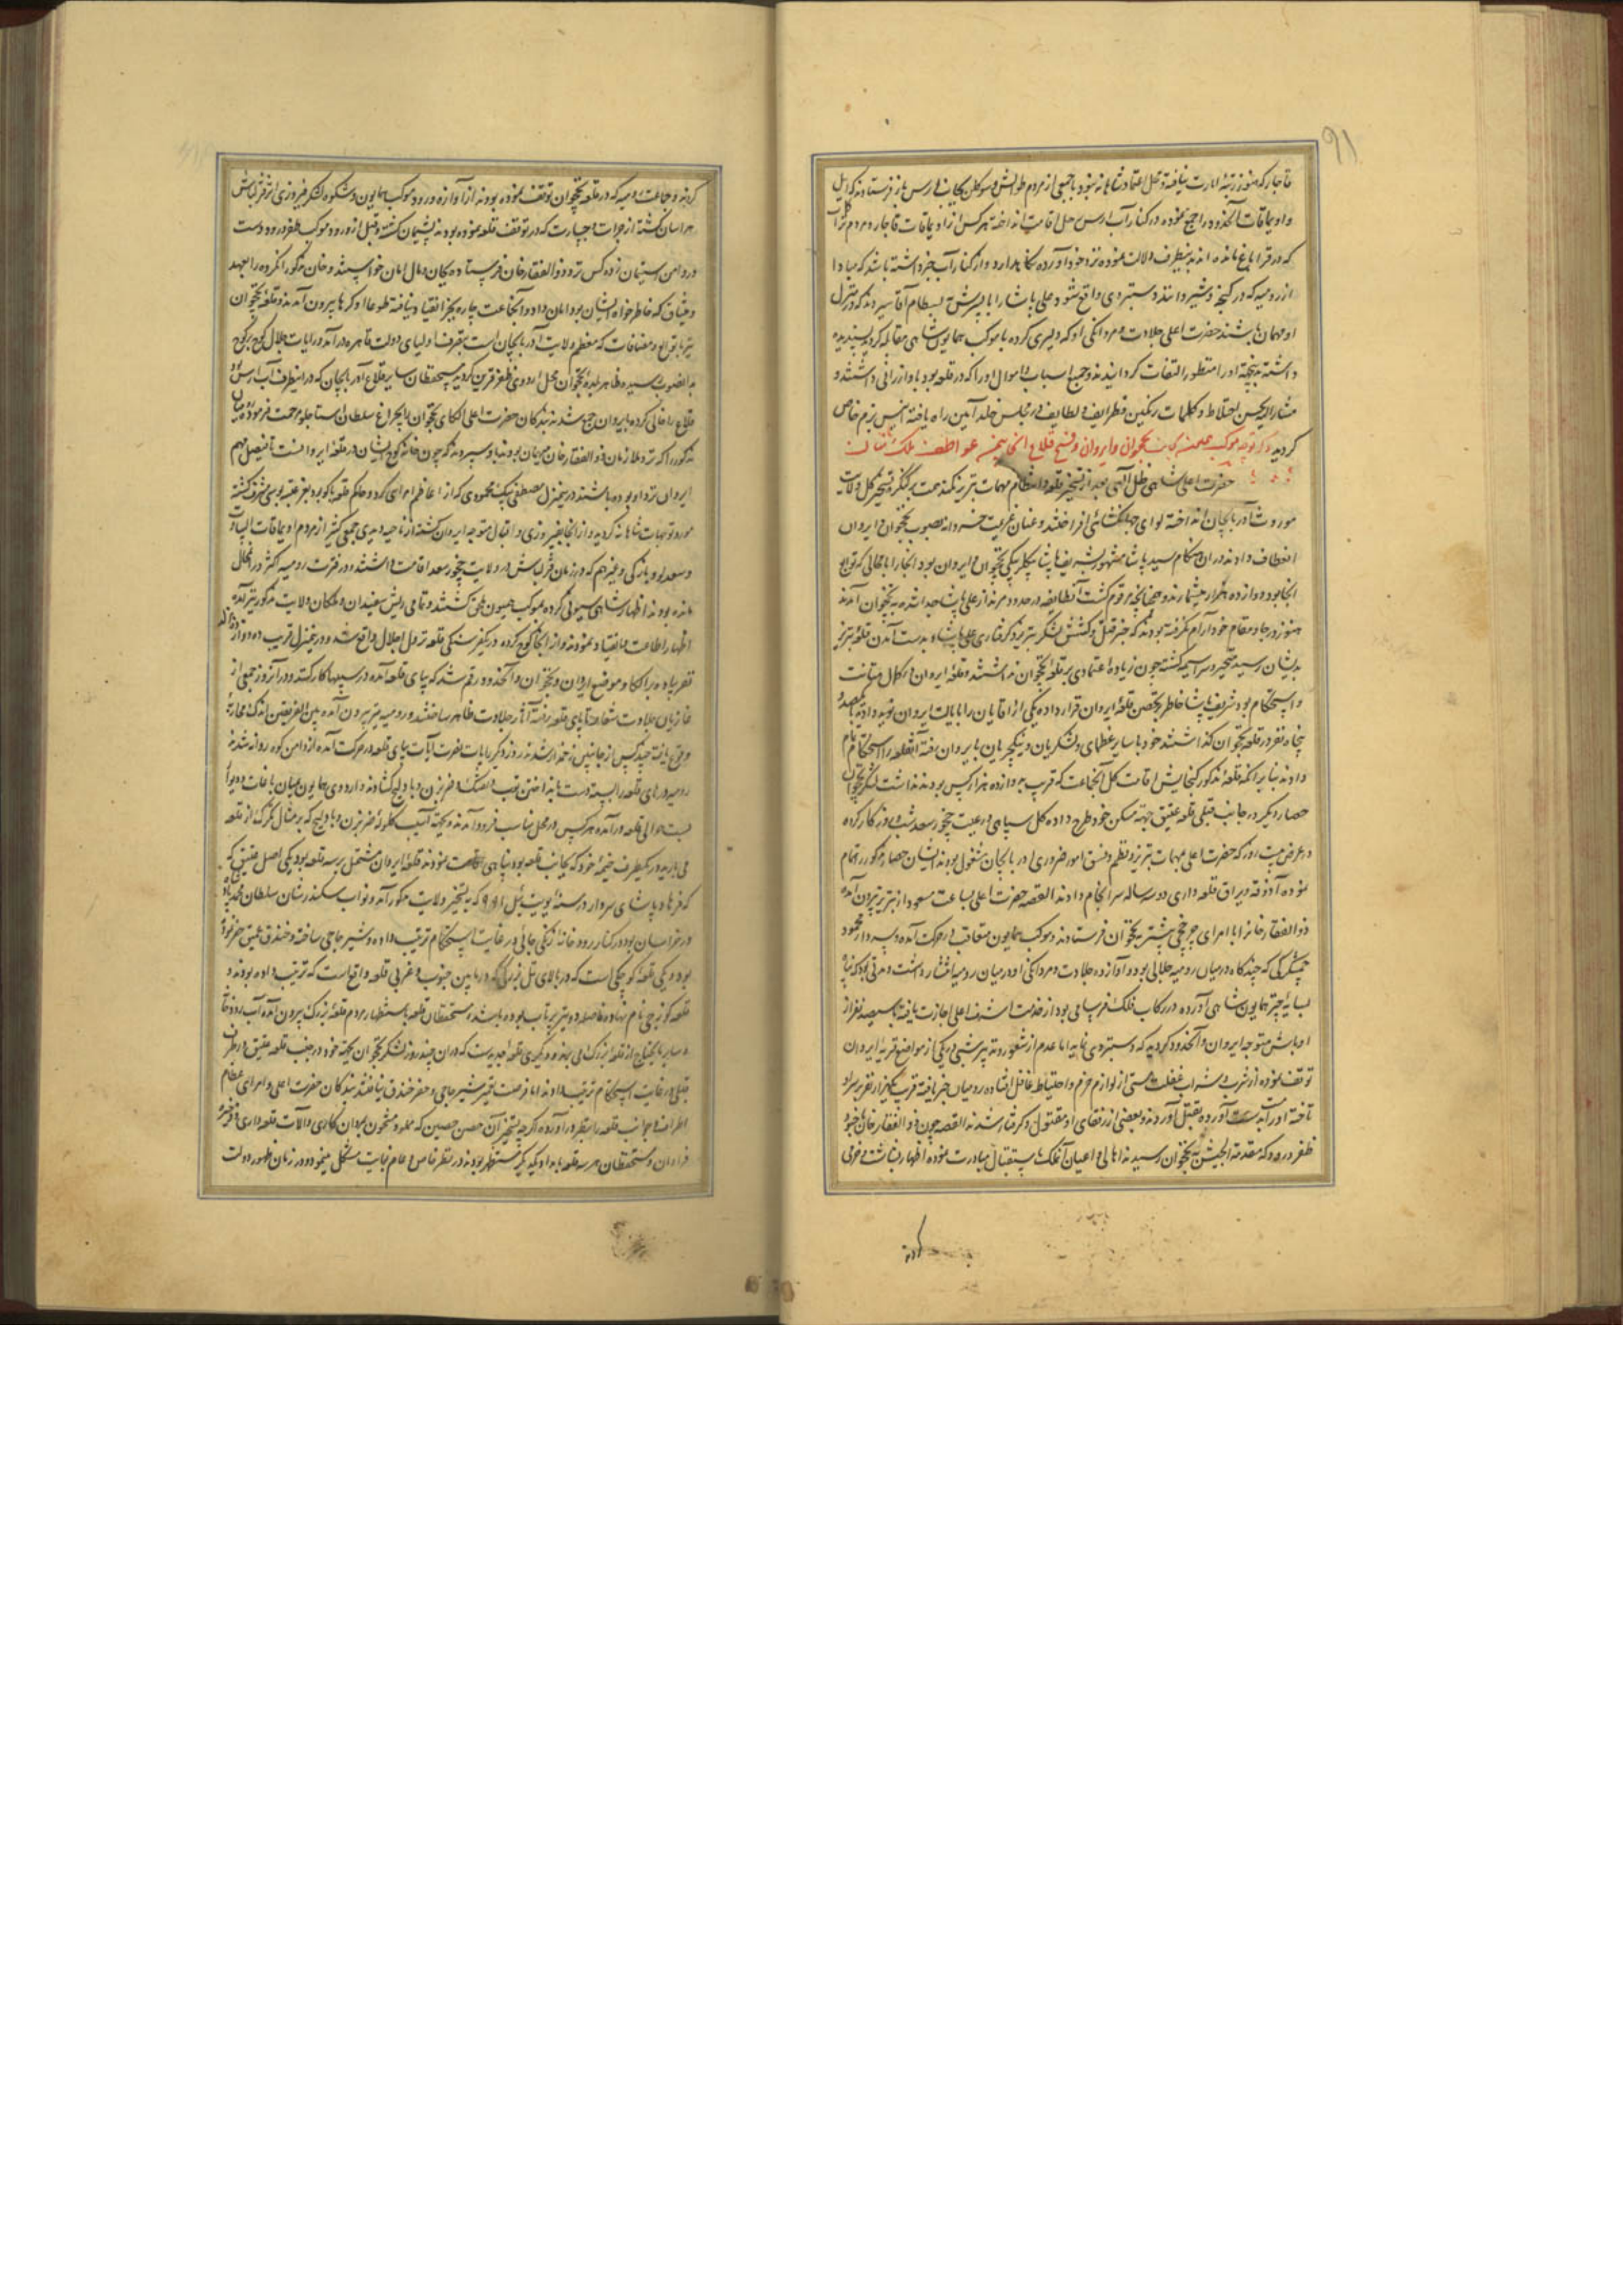 قاجار که هنوز رتبهٔ امارت نیافته و محل اعتماد شاهانه بود با جمعی از مردم طوالش و موکلان بجانب ارس بار فرستادند که ایل
و اویماقات آنحدود را جمع نموده در کنار آب ارس محل اقامت انداخته هرکس از اویماقات قاجار و مردم ترک
که در قراباغ مانده‌اند بدینطرف دلالت نموده نزد خود آورده نگاهدارد و از کنار آب خبر داشته باشد که مبادا
از رومیه که در گنجه و شیروانند دستبردی واقع شود و علی پاشا را با پسرش به بسطام آقا سپردند که در منزل
او مهمان باشند حضرت اعلی جلادت و مردانگی او که دلیری کرده با موکب همایون شاهی مقابله کردید پسندیده
داشته بدینجهة او را منظور التفات گردانیدند و جمیع اسباب و اموال او را که در قلعه بود باو ارزانی داشتند و
مشارالیه بحسن اختلاط و کلمات رنگین و ظرایف و لطایف در مجلس خلد آیین راه یافته انیس بزم خاص
گردید ذکر توجه موکب همایون بجانب نخجوان و ایروان و فتح قلاع آنجا بیمن عواطف ملک منان
حضرت اعلی شاهی ظل‌اللهی بعد از تسخیر قلعه و انتظام مهمات تبریز کمند همت بر کنگره تسخیر کل ولایت
موروث آذربایجان انداخته لوای جهانگشائی افراختند و عنان عزیمت خسروانه بصوب نخجوان و ایروان
انعطاف دادند در آن هنگام سید پاشا مشهور بشریف پاشا بیکلربیکی نخجوان و ایروان بود آنجا را با اهالی که توابع
آنجا بود دوازده هزار میشمارند و چنانچه مرقوم گشت آنطایفه در حدود مرند از علی پاشا جدا شده به نخجوان آمدند
هنوز در جا و مقام خود آرام نگرفته بودند که خبر قتل و کشش لشکر تبریز و گرفتاری علی پاشا و بدست آمدن قلعهٔ تبریز
بدیشان رسید متحیر و سراسیمه گشته چون زیاده اعتمادی بر قلعهٔ نخجوان نداشتند و قلعهٔ ایروان در کمال متانت
و استحکام بود شریف پاشا خاطر بتحصن قلعهٔ ایروان قرار داده یکی از آقایان را بایالت ایروان نوید داده با یکصد و
پنجاه نفر در قلعهٔ نخجوان گذاشتند خود با سایر عظمای لشکریان و ینگچریان بایروان رفته آنقلعه را استحکام تمام
دادند بنا بر آنکه قلعه مذکور گنجایش اقامت کل آنجماعت که قریب به دوازده هزار کس بودند نداشت لشکر نخجوان
حصار دیگر در جانب قبلی قلعهٔ عتیق جهة مسکن خود طرح داده کل سپاهی و رعیت چخور سعد شب و روز کار کرده
در عرض بیست روز که حضرت اعلی بمهمات تبریز و نظم و نسق امور ضروری آذربایجان مشغول بودند ایشان حصار مذکور را تمام
نموده آذوقه و یراق قلعه داری دو سه ساله سرانجام دادند القصه حضرت اعلی بساعت مسعود از تبریز بیرون آمده
ذوالفقار خانرا با امرای چرخچی پیشتر به نخجوان فرستادند و موکب همایون متعاقب در حرکت آمده و سردار محمود
چمشکزکی که چندگاه در میان رومیه جلالی بود و آوازه جلادت و مردانگی او در میان رومیه انتشار داشت و مدتی بود که پناه
بسایهٔ چتر همایون شاهی آورده در رکاب فلک فرسا می بود از خدمت اشرف اعلی اجازت یافته با سیصد نفر از
اوباش متوجه ایروان و آنحدود گردید که دستبردی نماید اما از عدم شعور و تدبیر شبی در یکی از مواضع قریب ایروان
توقف نموده از شرب شراب غفلت مستی از لوازم حزم و احتیاط غافل افتاده رومیان خبر یافته قریب یکهزار نفر بر سر او
تاخته او را بدست آورده بقتل آوردند و بعضی از رفقای او مقتول و گرفتار شدند القصه چون ذوالفقار خان با جنود
ظفر ورود که مقدمة الجیش به نخجوان رسیدند اهالی و اعیان آنملک باستقبال مبادرت نموده اظهار بشاشت و خرمی
کردند
کردند و جماعت رومیه که در قلعهٔ نخجوان توقف نموده بودند از آوازه ورود موکب همایون و شکوه لشکر فیروزی اثر قزلباش
هراسان گشته از جرأت و جسارت که در توقف قلعه نموده بودند پشیمان گشته و قبل از ورود موکب ظفر ورود دست
در دامن استیمان زده کس نزد ذوالفقار خان فرستاده بجان و مال امان خواستند و خان مذکور آنگروه را بعهد
و میثاق که خاطر خواه ایشان بود امان داد و آنجماعت چاره بجز انقیاد نیافته طوعا او کرها بیرون آمدند و قلعهٔ نخجوان
نیز با توابع و مضافات که معظم ولایت آذربایجان است بتصرف اولیای دولت قاهره در آمد و رایات جلال کوچ بر کوچ
بدانصوب رسیده ظاهر بلدهٔ نخجوان محل اردوی ظفر قرین گردید مستحفظان سایر قلاع آذربایجان که در اینطرف آب ارس بود
قلاع را خالی کرده بایروان جمع شدند بندگان حضرت اعلی الکای نخجوان را بچراغ سلطان استاجلو مرحمت فرموده سپاه
مذکور را که نزد ملازمان ذوالفقار خان مهمان بودند باو سپردند که چون خانه کوچ ایشان در قلعهٔ ایروانست تا فیصل مهم
ایروان نزد او بوده باشند در منزل مصطفی بیک محمودی که از اعاظم امرای کرد و حاکم قلعه ماکو بود بعز عتبه بوسی مشرف گشته
مورد توجهات شاهانه گردید و از آنجا بفیروزی و اقبال متوجه ایروان گشته از ناحیه و دیدی جمعی کثیر از مردم اویماقات البیات
و سعدلو و بازکی و غیر هم که در زمان قزلباش در ولایت چخور سعد اقامت داشتند و در فترت رومیه اکثر در آنمحال
مانده بودند اظهار شاهی سیونی کرده بموکب همیون ملحق گشتند و تمامی ریش سفیدان و ملکان ولایت مذکور نیز آمده
اظهار اطاعت و انقیاد نمودند و از آنجا کوچ کرده در یکفرسنگی قلعه نزول اجلال واقع شد و در ینمنزل قریب ده دوازده هزار
نفر پیاده از الکا و مواضع ایروان و نخجوان و آنحدود رقم شد که بپای قلعه آمده در سیبها کار کنند و در آنروز جمعی از
غازیان جلادت شعار تا پای قلعه رفته آثار جلادت ظاهر ساختند و رومیه نیز بیرون آمده بین الفریقین اندک محاربهٔ
وقوع یافته چند کس از جانبین زخمدار شدند روز دیگر رایات نصرت آیات بپای قلعه در حرکت آمده از دامن کوه روانه شدند
رومیه درهای قلعه را بسته دست بانداختن توپ و تفنگ و ضربزن و بادلیج گشادند و اردوی همایون بمیان باغات و دیوار
بست حوالی قلعه در آمده هرکس در محل مناسب فرود آمدند و جهة آسیب گلولهٔ ضربزن و بادلیج که بر مثال تگرگ از قلعه
می بارید در یکطرف خیمهٔ خود که بجانب قلعه بود پناهی اقامت نمودند قلعهٔ ایروان مشتمل بر سه قلعه بود یکی اصل عتیق که
که فرهاد پاشای سردار در سنهٔ یونت ئیل ۹۹۱ که بتسخیر ولایت مذکور آمده و نواب سکندر شان سلطان محمد پادشاه
در خراسان بود در کنار رودخانه زنگی جائی در غایت استحکام ترتیب داده و شیر حاجی ساخته و خندق عمیق حفر نموده
بود و یکی قلعهٔ کوچکی است که در بالای تل بزرگی که در ما بین جنوب و غربی قلعه واقع است که ترتیب داده بودند و
قلعه کوزچی نام نهاده فاصله دو تیر پرتاب بوده باشد مستحفظان قلعه باستظهار مردم قلعهٔ بزرگ بیرون آمده آب و آذوقه
و سایر ما یحتاج از قلعهٔ بزرگ می برند و دیگری قلعهٔ جدیدست که در آن چند روز لشکر نخجوان جهة خود در جنب قلعه عتیق در طرف
قبلی در غایت استحکام ترتیب دادند اما فرصت تعمیر شیر حاجی و حفر خندق نیافتند بندگان حضرت اعلی و امرای عظام
اطراف و جوانب قلعه را بنظر در آورده اگر چه تسخیر آن حصن حصین که مملو و مشحون بمردان کاری و آلات قلعه داری و ذخیره
فراوان و مستحفظان هر سه قلعه بامداد یکدیگر مستظهر بودند در نظر خاص و عام بغایت مشکل مینمود و در زمان ظهور دولت